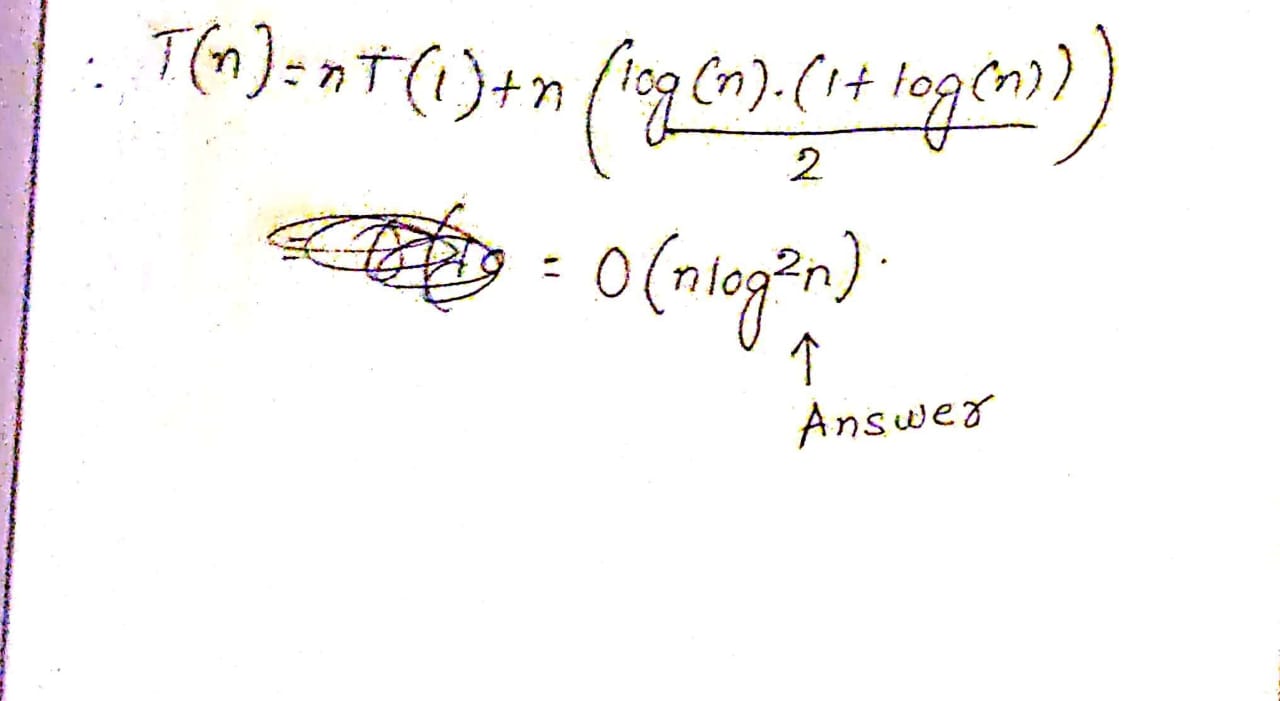 ∴ T(n) = nT(1) + n (log(n).(1 + log(n)) / 2)
= O(nlog²n).
↑
Answer